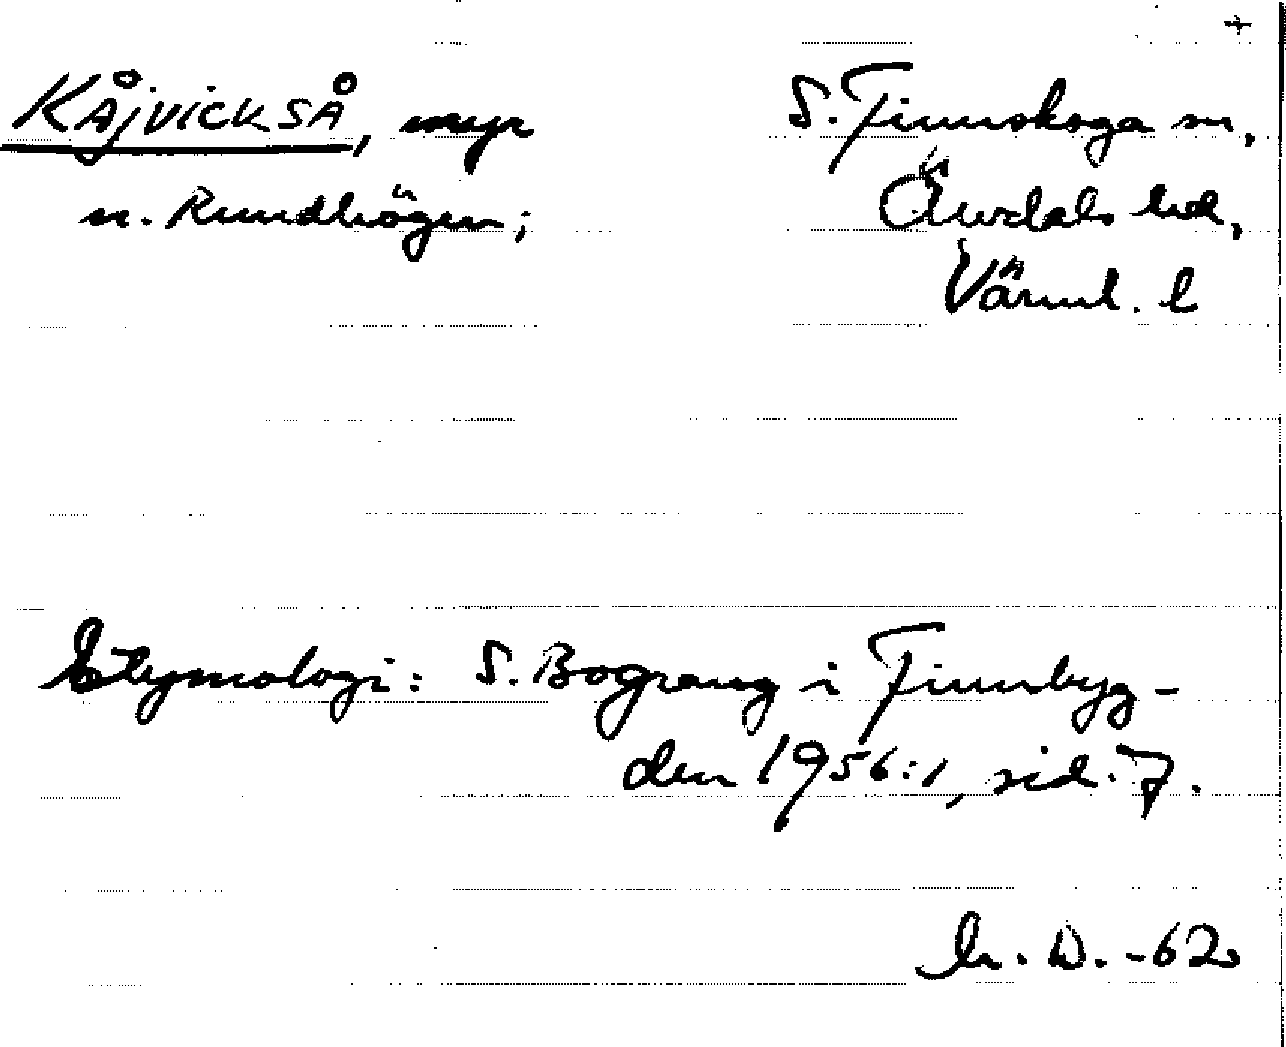 +
KÅJVICKSÅ, myr
n. Rundhögen;
S. Finnskoga sn,
Älvdals hd,
Värml. l
Etymologi: S. Bograng i Finnbyg-
den 1956:1, sid. 7.
D. -62